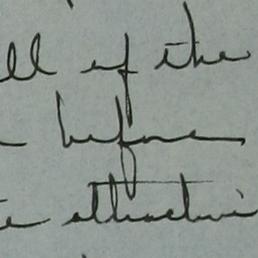 ll of the
before
attractive